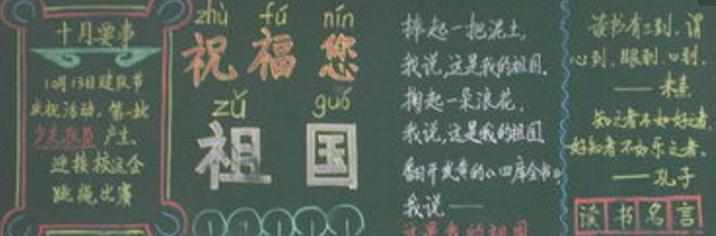 十月要事
10月13日建队节
庆祝活动，第一批
少先队员产生、
迎接校运会
跳绳比赛
zhù fú nín
祝福您
zǔ guó
祖国
捧起一把泥土，
我说，这是我的祖国，
掬起一朵浪花，
我说，这是我的祖国
翻开发黄的《四库全书》
我说——
这是我的祖国
读书有三到，谓
心到、眼到、口到。
——朱熹
知之者不如好之者，
好知者不如乐之者。
——孔子
读书名言